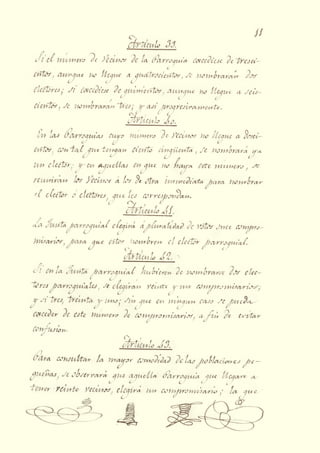 11
Artículo 39.
Si el número de Vecinos de la Parroquia excediese de trescien-
tos, aunque no llegue a quatrocientos, se nombrarán dos
electores; si excediese de quinientos, aunque no llegue a seis-
cientos, se nombrarán tres; y así progresivamente.
Artículo 40.
En las Parroquias cuyo número de Vecinos no llegue a Dosci-
entos, con tal que tengan ciento cinqüenta, se nombrará ya
un elector; y en aquellas en que no haya este número, se
reunirán los Vecinos á los de otra inmediata para nombrar
el elector ó electores que les correspondan.
Artículo 41.
La Junta parroquial elegirá á pluralidad de votos once compro-
misarios, para que estos nombren el elector parroquial.
Artículo 42.
Si en la Junta parroquial hubieren de nombrarse dos elec-
tores parroquiales, se elegirán veinte y un compromisarios;
y si tres, treinta y uno; sin que en ningun caso se pueda
exceder de este número de compromisarios, a fin de evitar
confusion.
Artículo 43.
Para consultar la mayor comodidad de las poblaciones pe-
queñas, se observará que aquella Parroquia que llegare a
tener veinte vecinos, elegirá un compromisario; la que